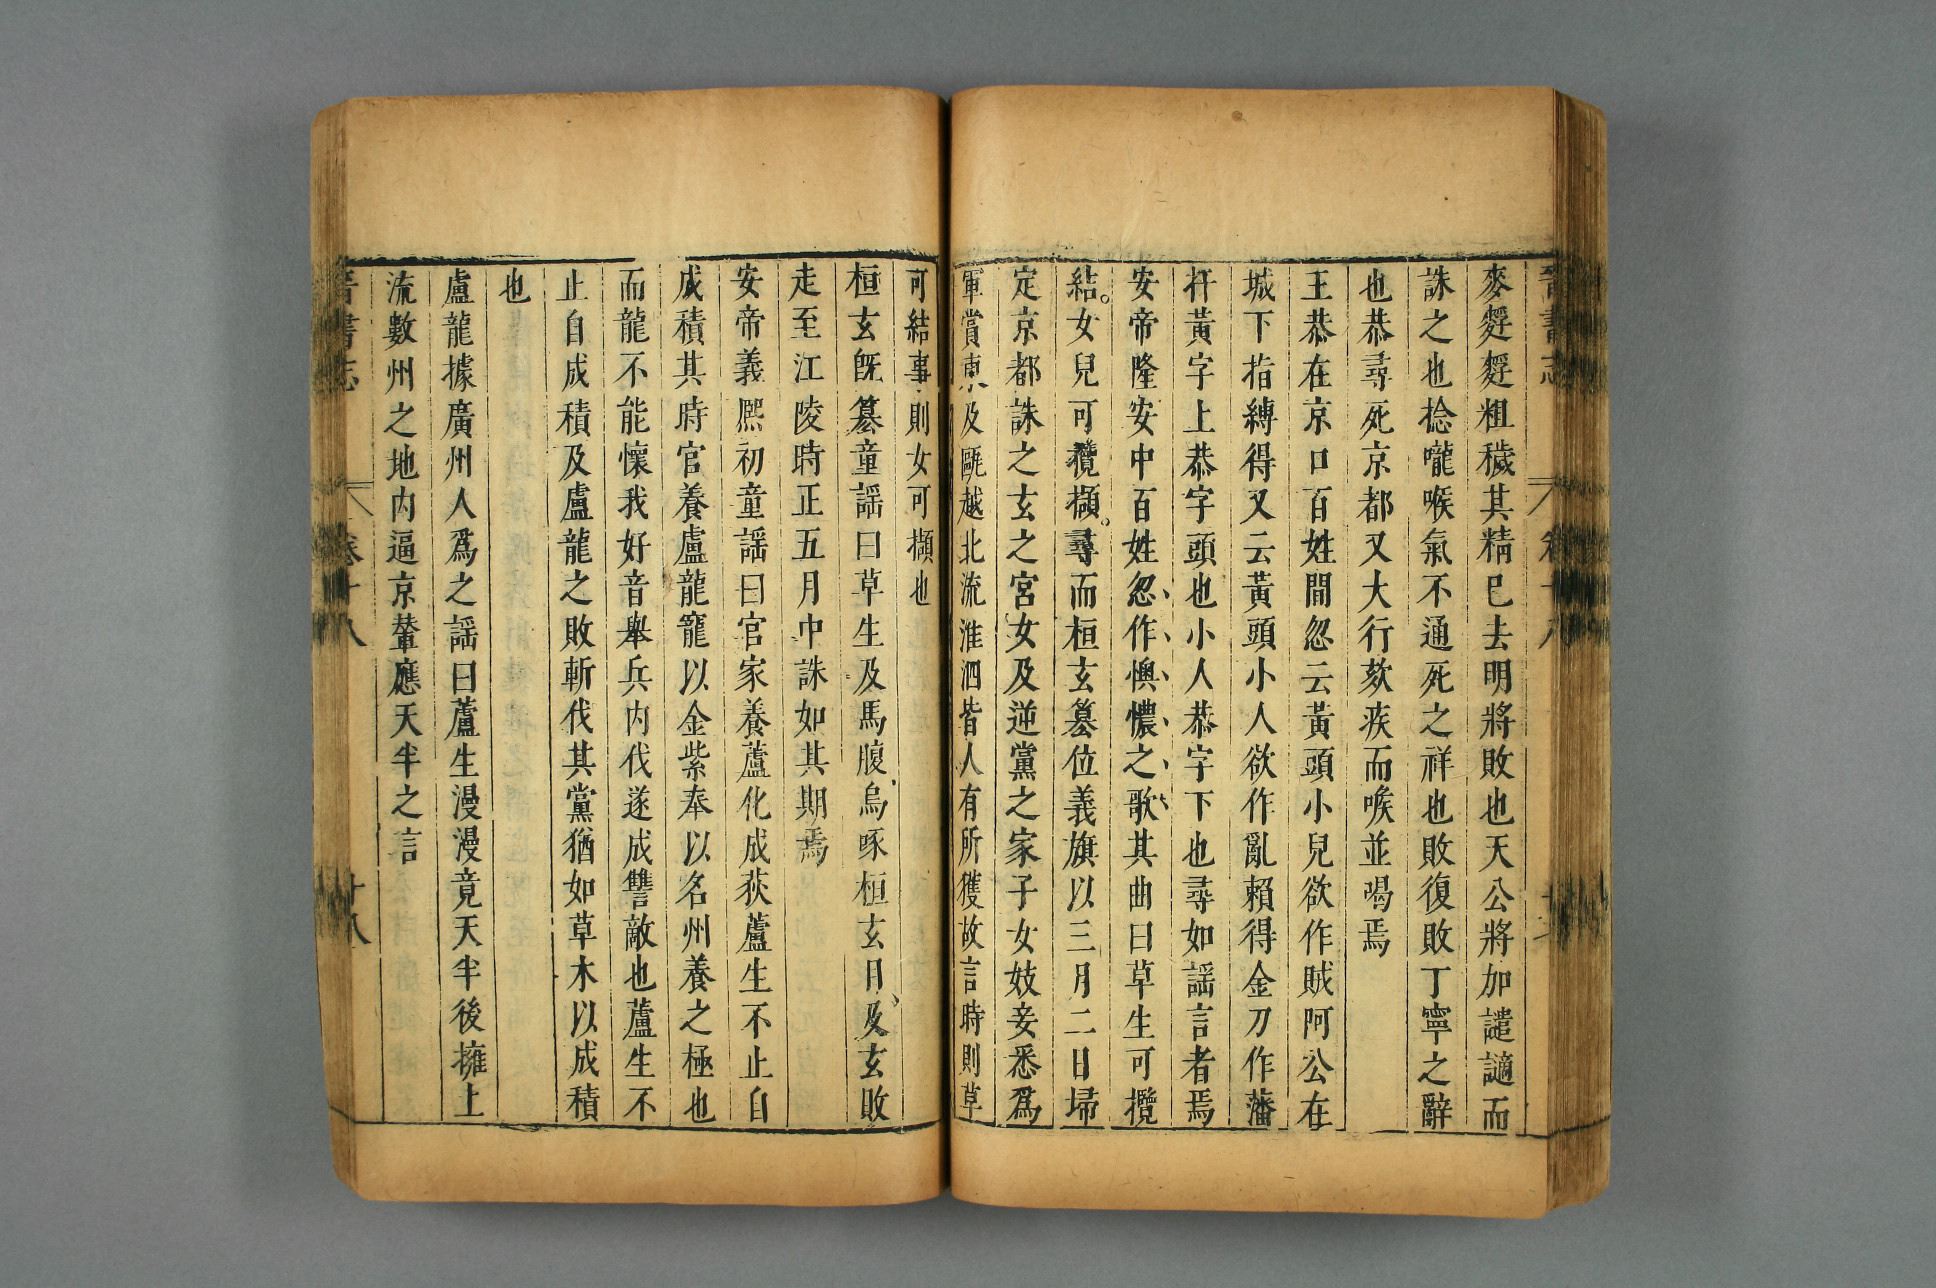 晉書志 卷十八
麥麫麫粗穢其精已去明將敗也天公將加譴謫而
誅之也捻嚨喉氣不通死之祥也敗復敗丁寧之辭
也恭尋死京都又大行欬疾而喉並喝焉
王恭在京口百姓間忽云黃頭小兒欲作賊阿公在
城下指縛得又云黃頭小人欲作亂賴得金刀作藩
扞黃字上恭字頭也小人恭字下也尋如謡言者焉
安帝隆安中百姓忽作懊憹之歌其曲曰草生可攬
結女兒可攬擷尋而桓玄篡位義旗以三月二日埽
定京都誅之玄之宮女及逆黨之家子女妓妾悉爲
軍賞東及甌越北流淮泗皆人有所獲故言時則草
可結事則女可擷也
桓玄既篡童謡曰草生及馬腹烏啄桓玄目及玄敗
走至江陵時正五月中誅如其期焉
安帝義熙初童謡曰官家養蘆化成荻蘆生不止自
成積其時官養盧龍寵以金紫奉以名州養之極也
而龍不能懷我好音舉兵内伐遂成讐敵也蘆生不
止自成積及盧龍之敗斬伐其黨猶如草木以成積
也
盧龍據廣州人爲之謡曰蘆生漫漫竟天半後擁上
流數州之地内逼京輦應天半之言
晉書志 卷十八 廿八